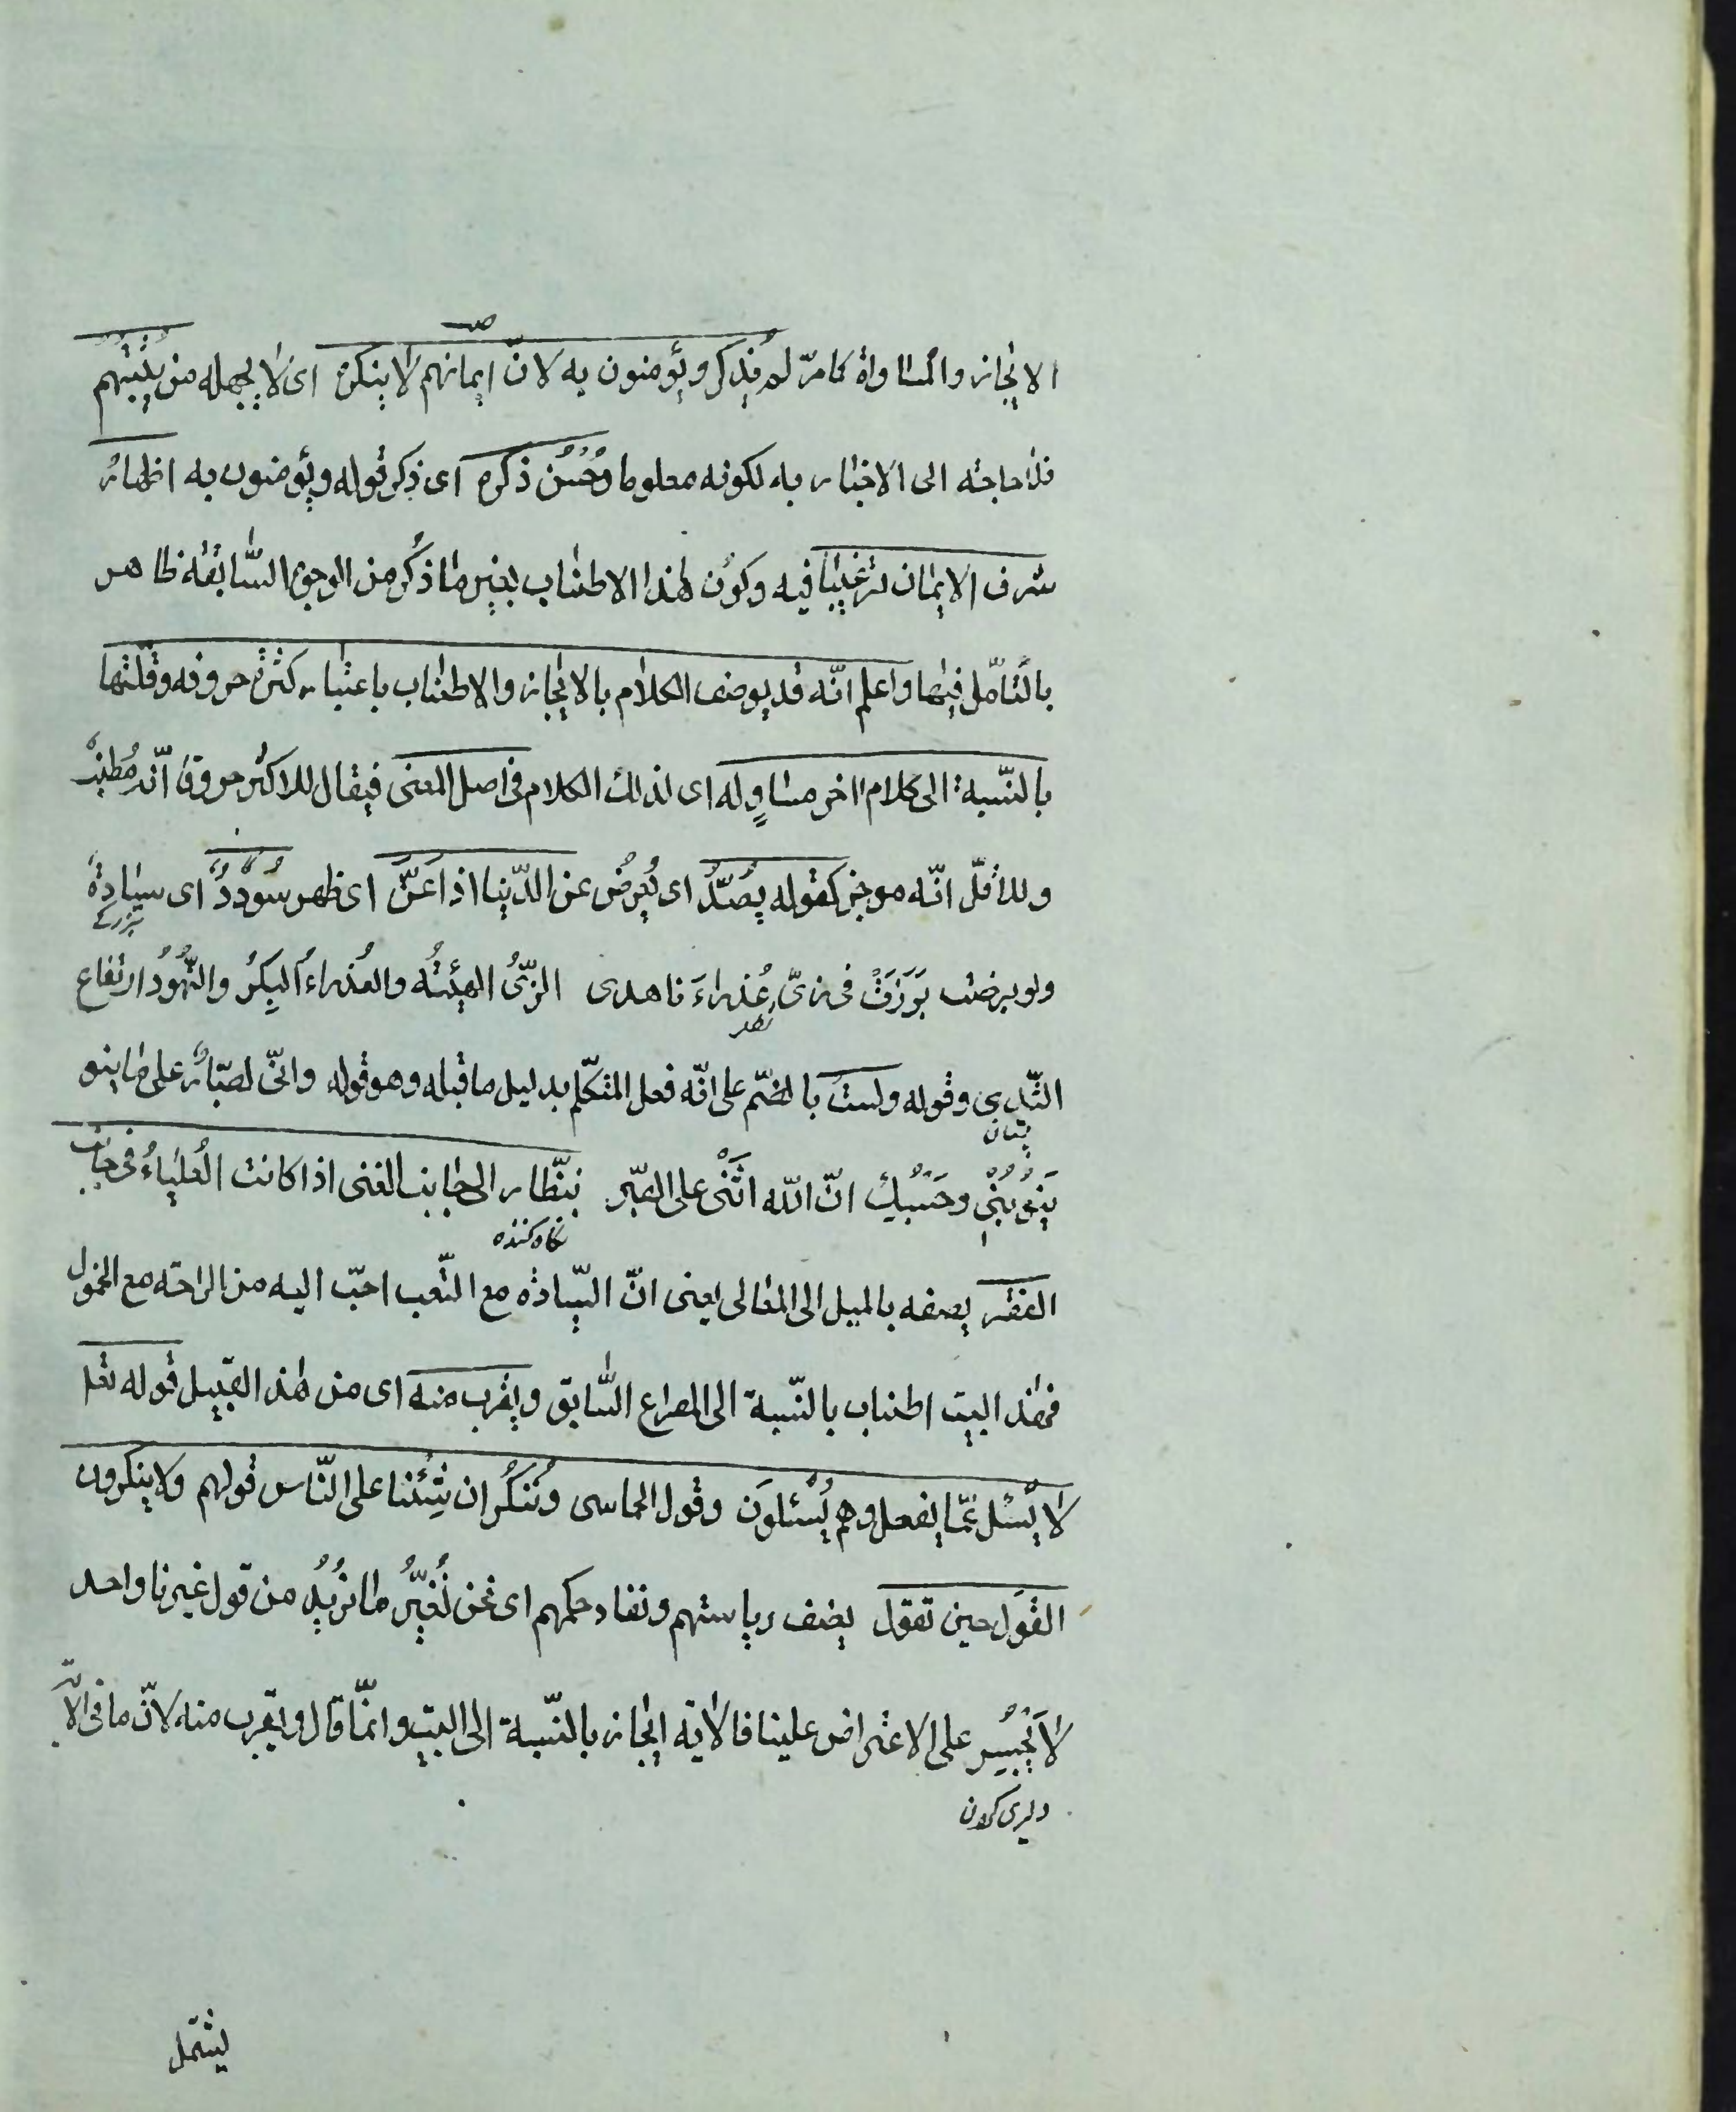 الايجاز والمساواة كما مرّ لم يذكر ويؤمنون به لانّ ايمانهم لا ينكره اى لا يجهله من يثبتهم
فلا حاجة الى الاخبار به لكونه معلوما وحُسْن ذكره اى ذكر قوله ويؤمنون به اظهار
شرف الايمان ترغيبا فيه وكون هذا الاطناب بغير ما ذُكر من الوجوه السّابقة ظاهر
بالتأمّل فيها واعلم انّه قد يوصف الكلام بالايجاز والاطناب باعتبار كثرة حروفه وقلّتها
بالنّسبة الى كلام اخر مساوٍ له اى لذلك الكلام فى اصل المعنى فيقال للاكثر حروفا انّه مُطنِب
وللاقلّ انّه موجز كقوله يَصُدّ اى يُعرِض عن الدّنيا اذا عَنَّ اى ظهر سُؤدُدٌ اى سيادةٌ
بزرگے
ولو برضت بَرَزَتْ فى زىّ عُذراءَ ناهدى الزّىُّ الهيئتُه والعُذراءُ البِكرُ والنُّهُودُ ارتفاع
نهد
الثّدى وقوله ولستُ بالضّم على انّه فعل المتكلّم بدليل ما قبله وهو قوله وانّى لصبّارٌ على ما ينو
پستان
يَنُوبُنى وحَسْبُكِ انّ اللّه اَثْنى على الصّبر بنظّار الى جانب الغنى اذا كانت العُلياءُ فى جانب
نگاه كننده
الفقر يصفه بالميل الى المعالى يعنى انّ السّيادة مع التّعب احبّ اليه من الراحة مع الخمول
فهذا البيت اطناب بالنّسبة الى المصراع السّابق ويقرب منه اى من هذا القبيل قوله تعا
لا يُسْئل عمّا يفعل وهم يُسْئلونَ وقول الحماسى ونُنكرُ ان شِئنا على النّاس قولهم ولا ينكرون
القَول حين نقول يصف رياستهم ونفاد حكمهم اى نحن نُغيّرُ ما نريدُ من قول غيرنا واحد
لا يَجْسُر على الاعتراض علينا فالاية ايجاز بالنّسبة الى البيت وانّما قال ويقرب منه لانّ ما فى الاية
دليرى كردن
يشتمل